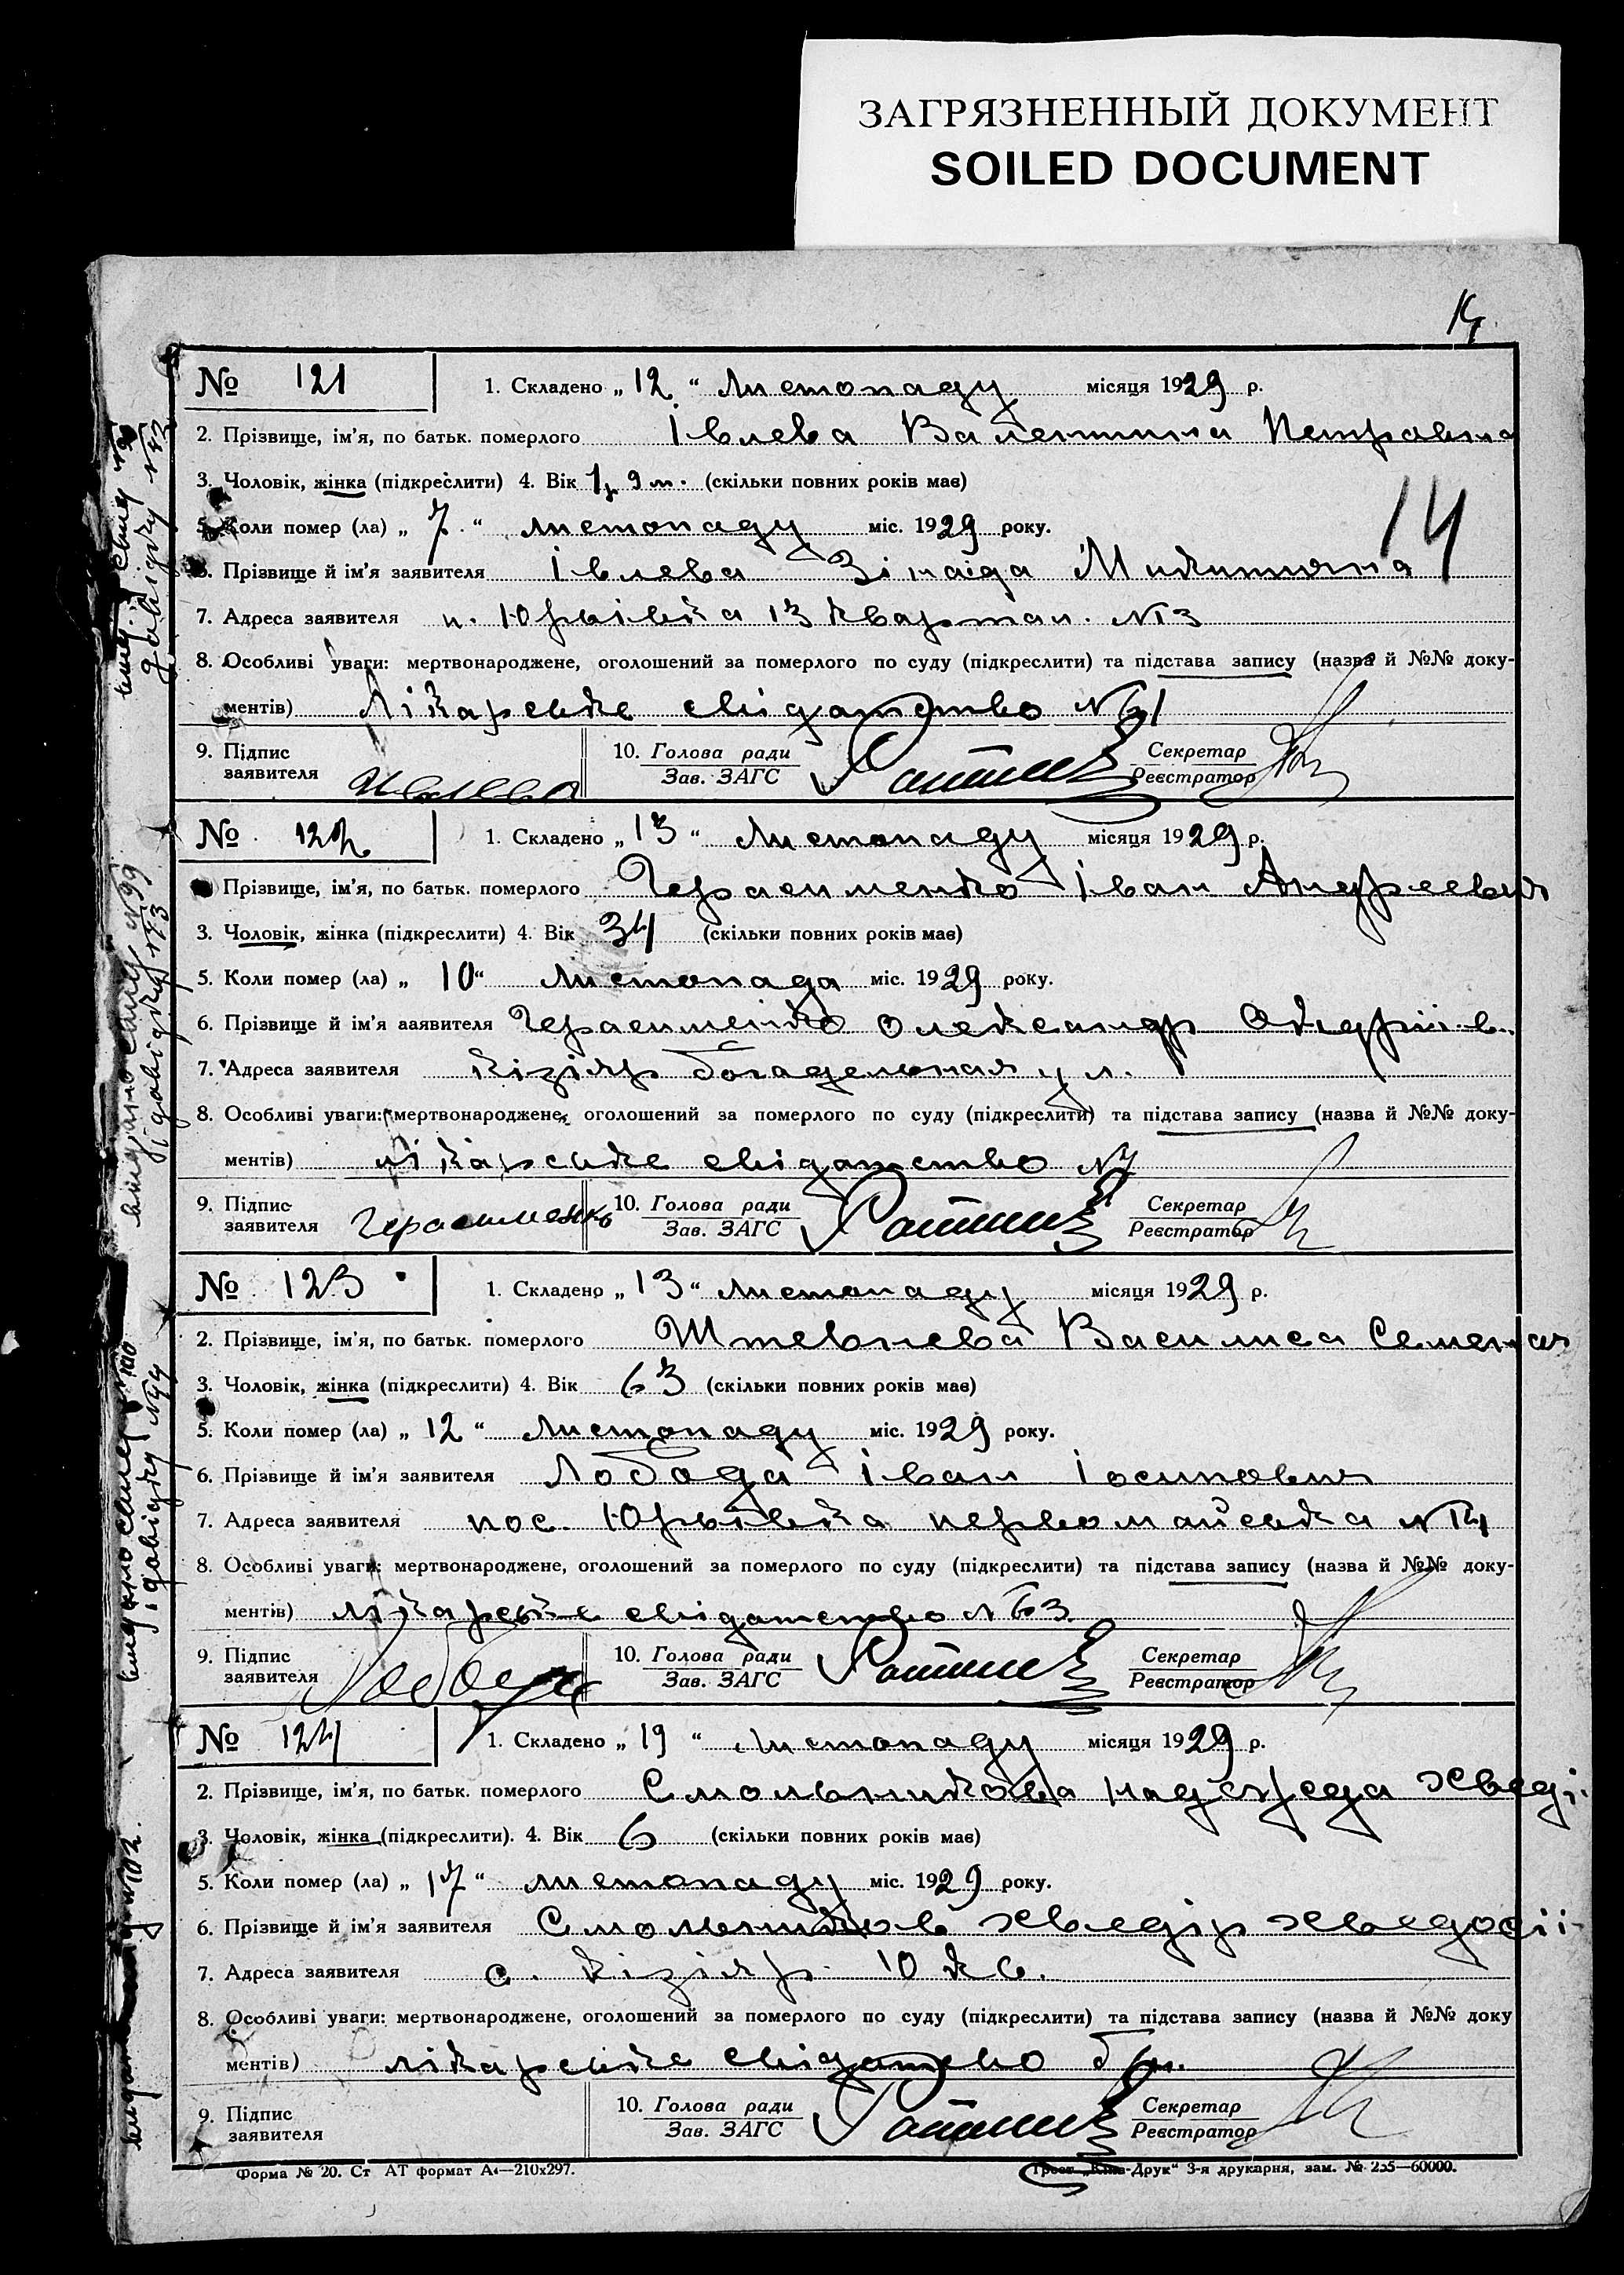 ЗАГРЯЗНЕННЫЙ ДОКУМЕНТ
SOILED DOCUMENT
14
№ 121 1. Складено „12“ Листопаду місяця 1929 р.
2. Прізвище, ім'я, по батьк. померлого Івлева Валентина Петровна
3. Чоловік, жінка (підкреслити) 4. Вік 1 р 9 м. (скільки повних років має)
14
5. Коли помер (ла) „7“ листопаду міс. 1929 року.
6. Прізвище й ім'я заявителя Івлева Зінаїда Микитична
7. Адреса заявителя п. Юрьївка 13 квартал. №3
8. Особливі уваги: мертвонароджене, оголошений за померлого по суду (підкреслити) та підстава запису (назва й №№ доку-
ментів) Лікарське свідотство №
9. Підпис заявителя Ивлева 10. Голова ради Зав. ЗАГС Секретар Реєстратор
№ 122 1. Складено „13“ Листопаду місяця 1929 р.
Прізвище, ім'я, по батьк. померлого Герасименко Іван Андреевич
3. Чоловік, жінка (підкреслити) 4. Вік 34 (скільки повних років має)
5. Коли помер (ла) „10“ Листопада міс. 1929 року.
6. Прізвище й ім'я заявителя Герасименко Олександр
7. Адреса заявителя Кізіяр Богадельная ул.
8. Особливі уваги: мертвонароджене, оголошений за померлого по суду (підкреслити) та підстава запису (назва й №№ доку-
ментів) лікарське свідотство №
9. Підпис заявителя Герасименко 10. Голова ради Зав. ЗАГС Секретар Реєстратор
№ 123 1. Складено „13“ Листопаду місяця 1929 р.
2. Прізвище, ім'я, по батьк. померлого Штевнева Василиса
3. Чоловік, жінка (підкреслити) 4. Вік 63 (скільки повних років має)
5. Коли помер (ла) „12“ Листопаду міс. 1929 року.
6. Прізвище й ім'я заявителя Лобода Іван Іосипович
7. Адреса заявителя пос. Юрьївка первомайська №14
8. Особливі уваги: мертвонароджене, оголошений за померлого по суду (підкреслити) та підстава запису (назва й №№ доку-
ментів) лікарське свідотство №63
9. Підпис заявителя Лобода 10. Голова ради Зав. ЗАГС Секретар Реєстратор
№ 124 1. Складено „19“ Листопаду місяця 1929 р.
2. Прізвище, ім'я, по батьк. померлого Смольникова Надежда Хведі.
3. Чоловік, жінка (підкреслити). 4. Вік 6 (скільки повних років має)
5. Коли помер (ла) „17“ листопаду міс. 1929 року.
6. Прізвище й ім'я заявителя Смольников Хведір Хведосіі-
7. Адреса заявителя с. Кізіяр 10 кв.
8. Особливі уваги: мертвонароджене, оголошений за померлого по суду (підкреслити) та підстава запису (назва й №№ доку
ментів) лікарське свідотство
9. Підпис заявителя 10. Голова ради Зав. ЗАГС Секретар Реєстратор
Форма № 20. Ст АТ формат А4—210х297. Трест „Київ-Друк“ 3-я друкарня, зам. № 255—60000.